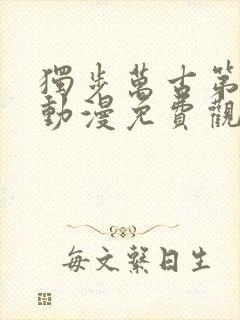 獨步萬古第
動漫免費觀
每文繫日生